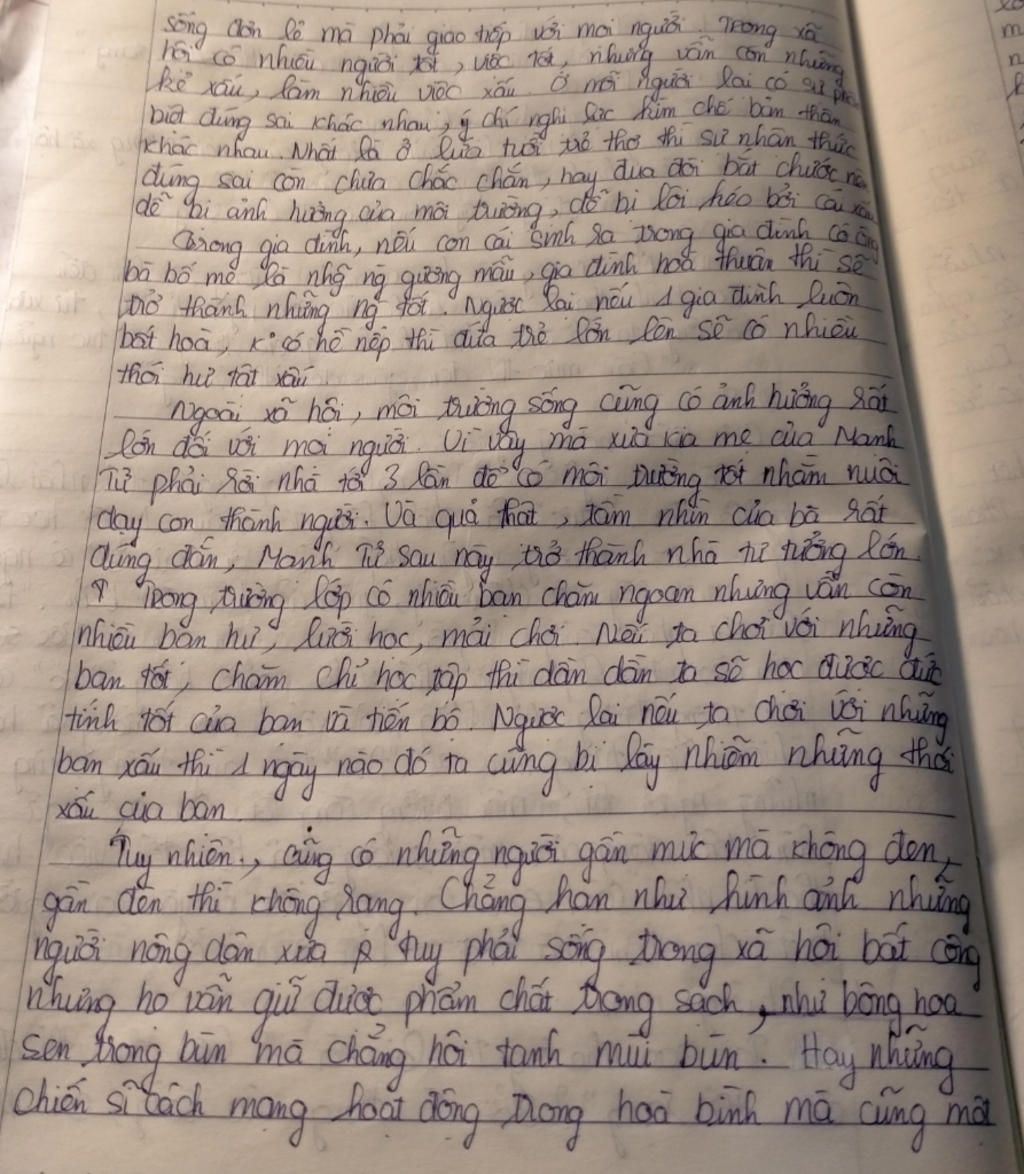 sống đơn lẻ mà phải giao tiếp với mọi người. Trong xã
hội có nhiều người tốt, việc tốt, nhưng vẫn còn những
kẻ xấu, làm nhiều việc xấu. Ở mỗi người lại có sự phân
biệt đúng sai khác nhau, ý chí nghị lực kìm chế bản thân
khác nhau. Nhất là ở lứa tuổi trẻ thơ thì sự nhận thức
đúng sai còn chưa chắc chắn, hay đua đòi bắt chước nên
dễ bị ảnh hưởng của môi trường, dễ bị lôi kéo bởi cái xấu
Trong gia đình, nếu con cái sinh ra trong gia đình có ông
bà bố mẹ là nhữ ng gương mẫu, gia đình hoà thuận thì sẽ
trở thành những ng tốt. Ngược lại nếu 1 gia đình luôn
bất hoà, k° có nề nếp thì đứa trẻ lớn lên sẽ có nhiều
thói hư tật xấu
Ngoài xã hội, môi trường sống cũng có ảnh hưởng rất
lớn đối với mọi người. Vì vậy mà xưa kia mẹ của Mạnh
Tử phải rời nhà tới 3 lần để có môi trường tốt nhằm nuôi
dạy con thành người. Và quả thật, tầm nhìn của bà rất
đúng đắn, Mạnh Tử sau này trở thành nhà tư tưởng lớn.
Trong trường lớp có nhiều bạn chăm ngoan nhưng vẫn còn
nhiều bạn hư, lười học, mải chơi. Nếu ta chơi với những
bạn tốt, chăm chỉ học tập thì dần dần ta sẽ học được đức
tính tốt của bạn và tiến bộ. Ngược lại nếu ta chơi với những
bạn xấu thì 1 ngày nào đó ta cũng bị lây nhiễm những thói
xấu của bạn.
Tuy nhiên, cũng có những người gần mực mà không đen,
gần đèn thì không rạng. Chẳng hạn như hình ảnh những
người nông dân xưa tuy phải sống trong xã hội bất công
nhưng họ vẫn giữ được phẩm chất trong sạch, như bông hoa
sen trong bùn mà chẳng hôi tanh mùi bùn. Hay những
chiến sĩ cách mạng hoạt động trong hoà bình mà cũng một